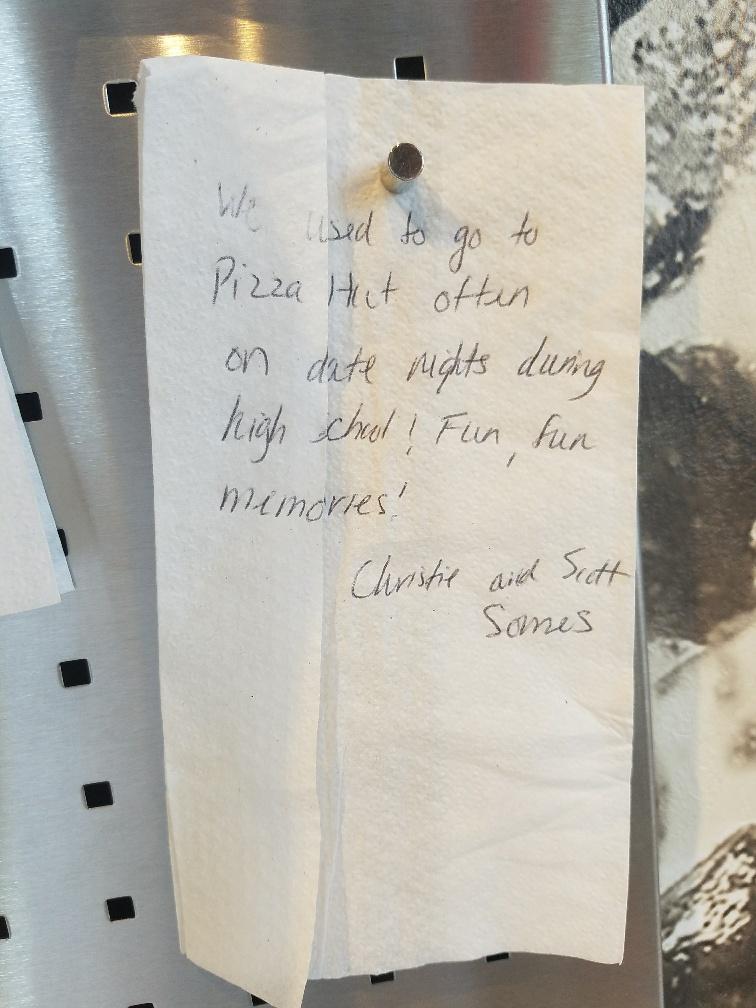 We used to go to
Pizza Hut often
on date nights during
high school! Fun, fun
memories!
Christie and Scott
Somes